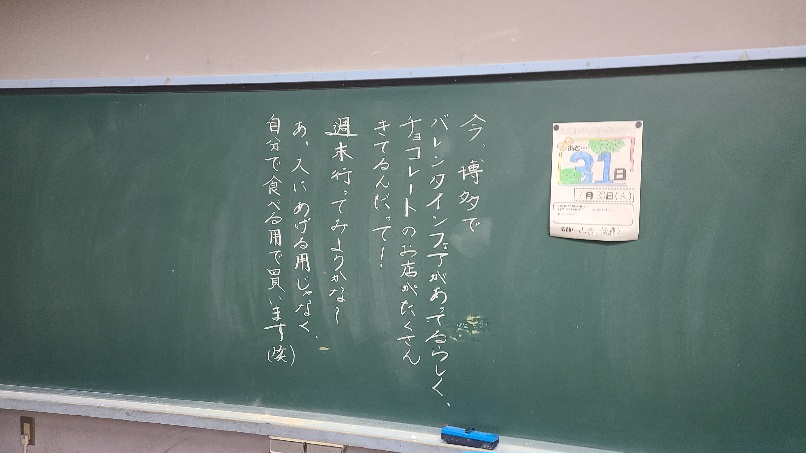 今、博多で
バレンタインフェアがあってるらしく、
チョコレートのお店がたくさん
きてるんだって!
週末行ってみようかな〜
あ、人にあげる用じゃなく、
自分で食べる用で買います(笑)
あと
31日